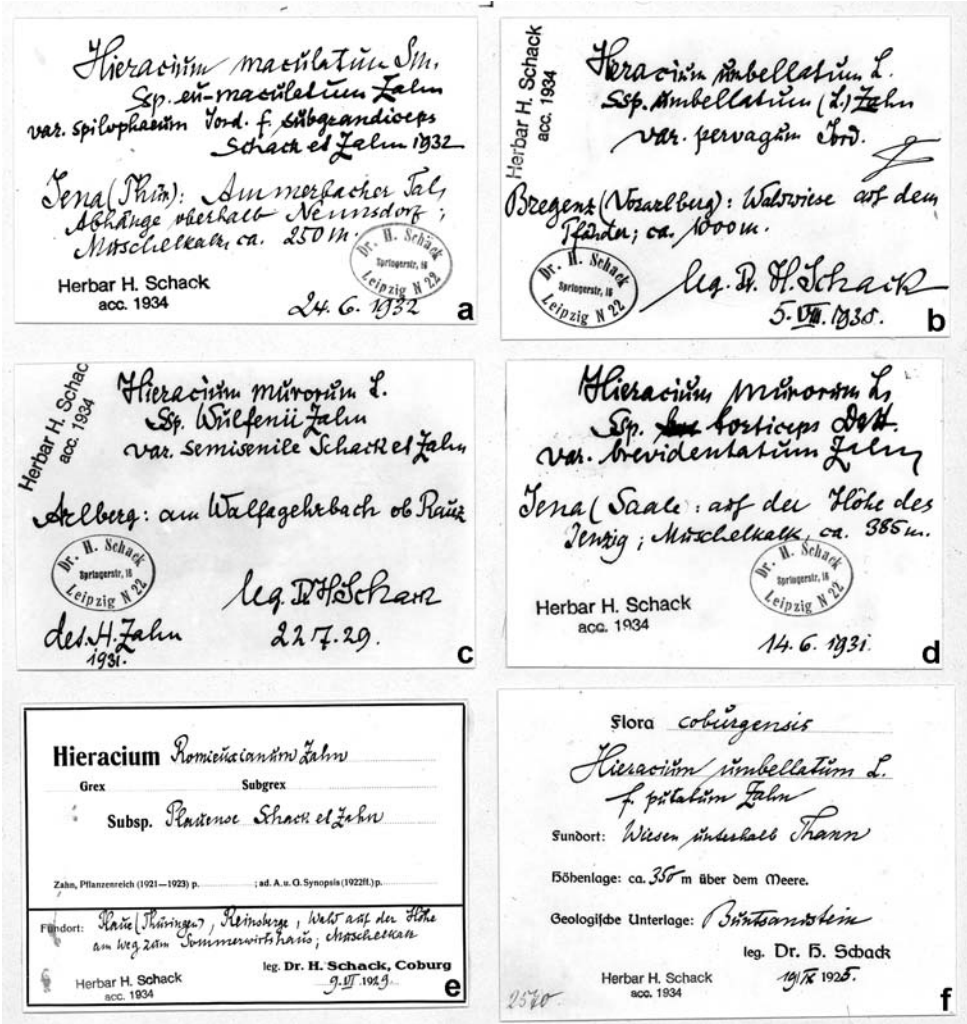 Hieracium maculatum Sm.
Ssp. eu-maculatum Zahn
var. spilophaeum Jord. f. subgrandiceps
Schack et Zahn 1932
Jena (Thür.): Ammerbacher Tal,
Abhänge oberhalb Nennsdorf;
Muschelkalk, ca. 250 m.
Dr. H. Schack
Springerstr. 16
Leipzig N 22
Herbar H. Schack
acc. 1934
24. 6. 1932
a
Herbar H. Schack
acc. 1934
Hieracium umbellatum L.
Ssp. umbellatum (L.) Zahn
var. pervagum Jord.
Bregenz (Vorarlberg): Waldwiese auf dem
Pfänder; ca. 1000 m.
Dr. H. Schack
Springerstr. 16
Leipzig N 22
leg. Dr. H. Schack
5. VIII.
b
Herbar H. Schac
acc. 1934
Hieracium murorum L.
Ssp. Wulfenii Zahn
var. semisenile Schack et Zahn
Arlberg: am Walfagehrbach ob Rauz
Dr. H. Schack
Springerstr. 16
Leipzig N 22
leg. Dr H Schack
des. H. Zahn
1931.
22 7. 29.
c
Hieracium murorum L.
Ssp. torticeps Dahl.
var. brevidentatum Zahn
Jena (Saale: auf der Höhe des
Jenzig; Muschelkalk, ca. 385 m.
Dr. H. Schack
Springerstr. 16
Leipzig N 22
Herbar H. Schack
acc. 1934
14. 6. 1931.
d
Hieracium Romieuxianum Zahn
Grex Subgrex
Subsp. Plauense Schack et Zahn
Zahn, Pflanzenreich (1921—1923) p. ; ad. A. u. G. Synopsis (1922ff.) p.
Fundort: Plaue (Thüringen), Reinsberge, Wald auf der Höhe
am Weg zum Sommerwirtshaus; Muschelkalk
leg. Dr. H. Schack, Coburg
9. VI 1929
Herbar H. Schack
acc. 1934
e
Flora coburgensis
Hieracium umbellatum L.
f. putatum Zahn
Fundort: Wiesen unterhalb Thann
Höhenlage: ca. 350 m über dem Meere.
Geologische Unterlage: Buntsandstein
leg. Dr. H. Schack
19/IX 1925.
Herbar H. Schack
acc. 1934
2570
f